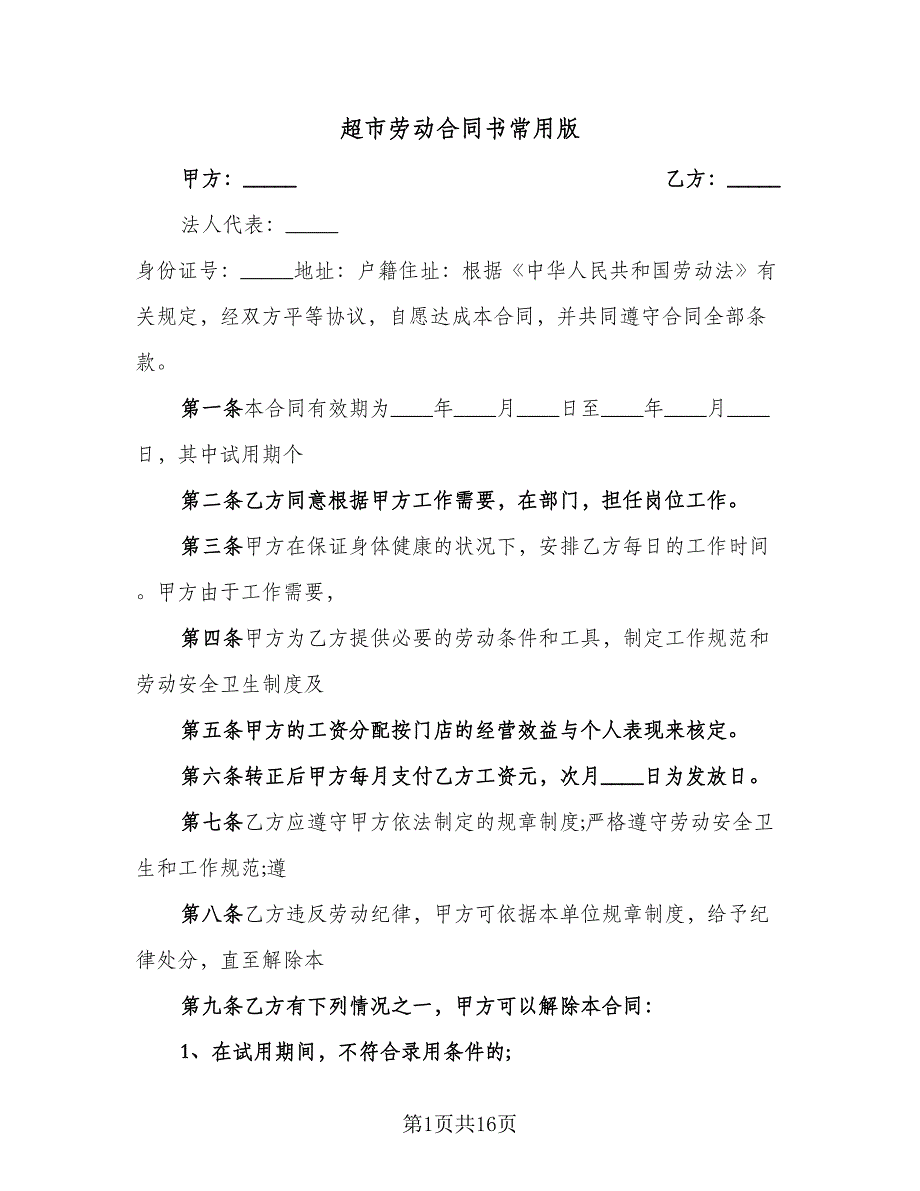 超市劳动合同书常用版
甲方：_____ 乙方：_____
法人代表：_____
身份证号：_____地址：户籍住址：根据《中华人民共和国劳动法》有
关规定，经双方平等协议，自愿达成本合同，并共同遵守合同全部条
款。
第一条本合同有效期为____年____月____日至____年____月____
日，其中试用期个
第二条乙方同意根据甲方工作需要，在部门，担任岗位工作。
第三条甲方在保证身体健康的状况下，安排乙方每日的工作时间
。甲方由于工作需要，
第四条甲方为乙方提供必要的劳动条件和工具，制定工作规范和
劳动安全卫生制度及
第五条甲方的工资分配按门店的经营效益与个人表现来核定。
第六条转正后甲方每月支付乙方工资元，次月____日为发放日。
第七条乙方应遵守甲方依法制定的规章制度;严格遵守劳动安全卫
生和工作规范;遵
第八条乙方违反劳动纪律，甲方可依据本单位规章制度，给予纪
律处分，直至解除本
第九条乙方有下列情况之一，甲方可以解除本合同：
1、在试用期间，不符合录用条件的;
第1页共16页